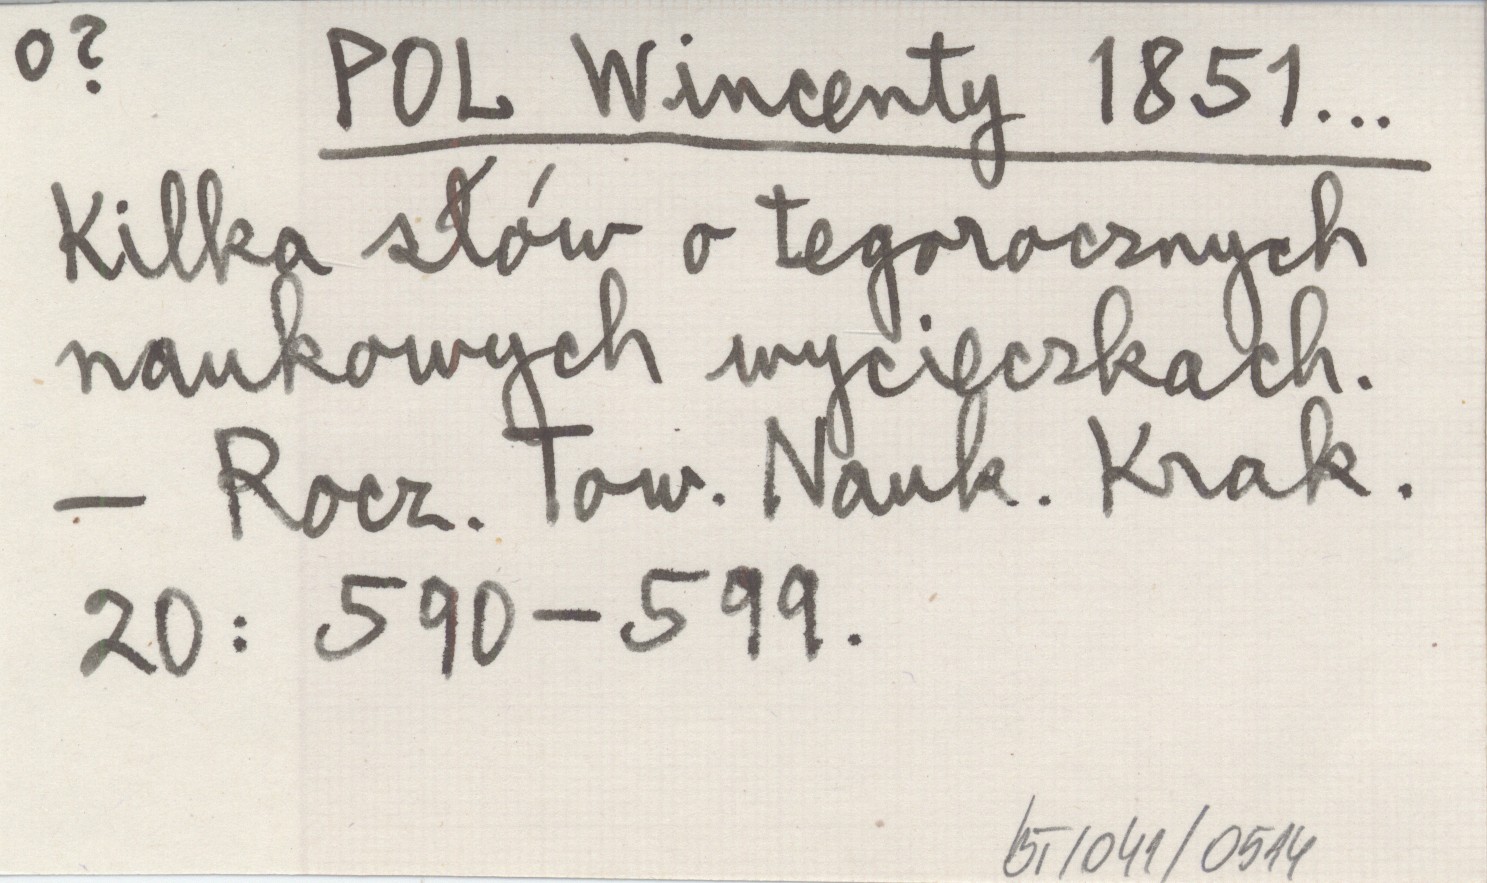 o?
POL Wincenty 1851...
Kilka słów o tegorocznych
naukowych wycieczkach.
— Rocz. Tow. Nauk. Krak.
20: 590–599.
BT/041/0514